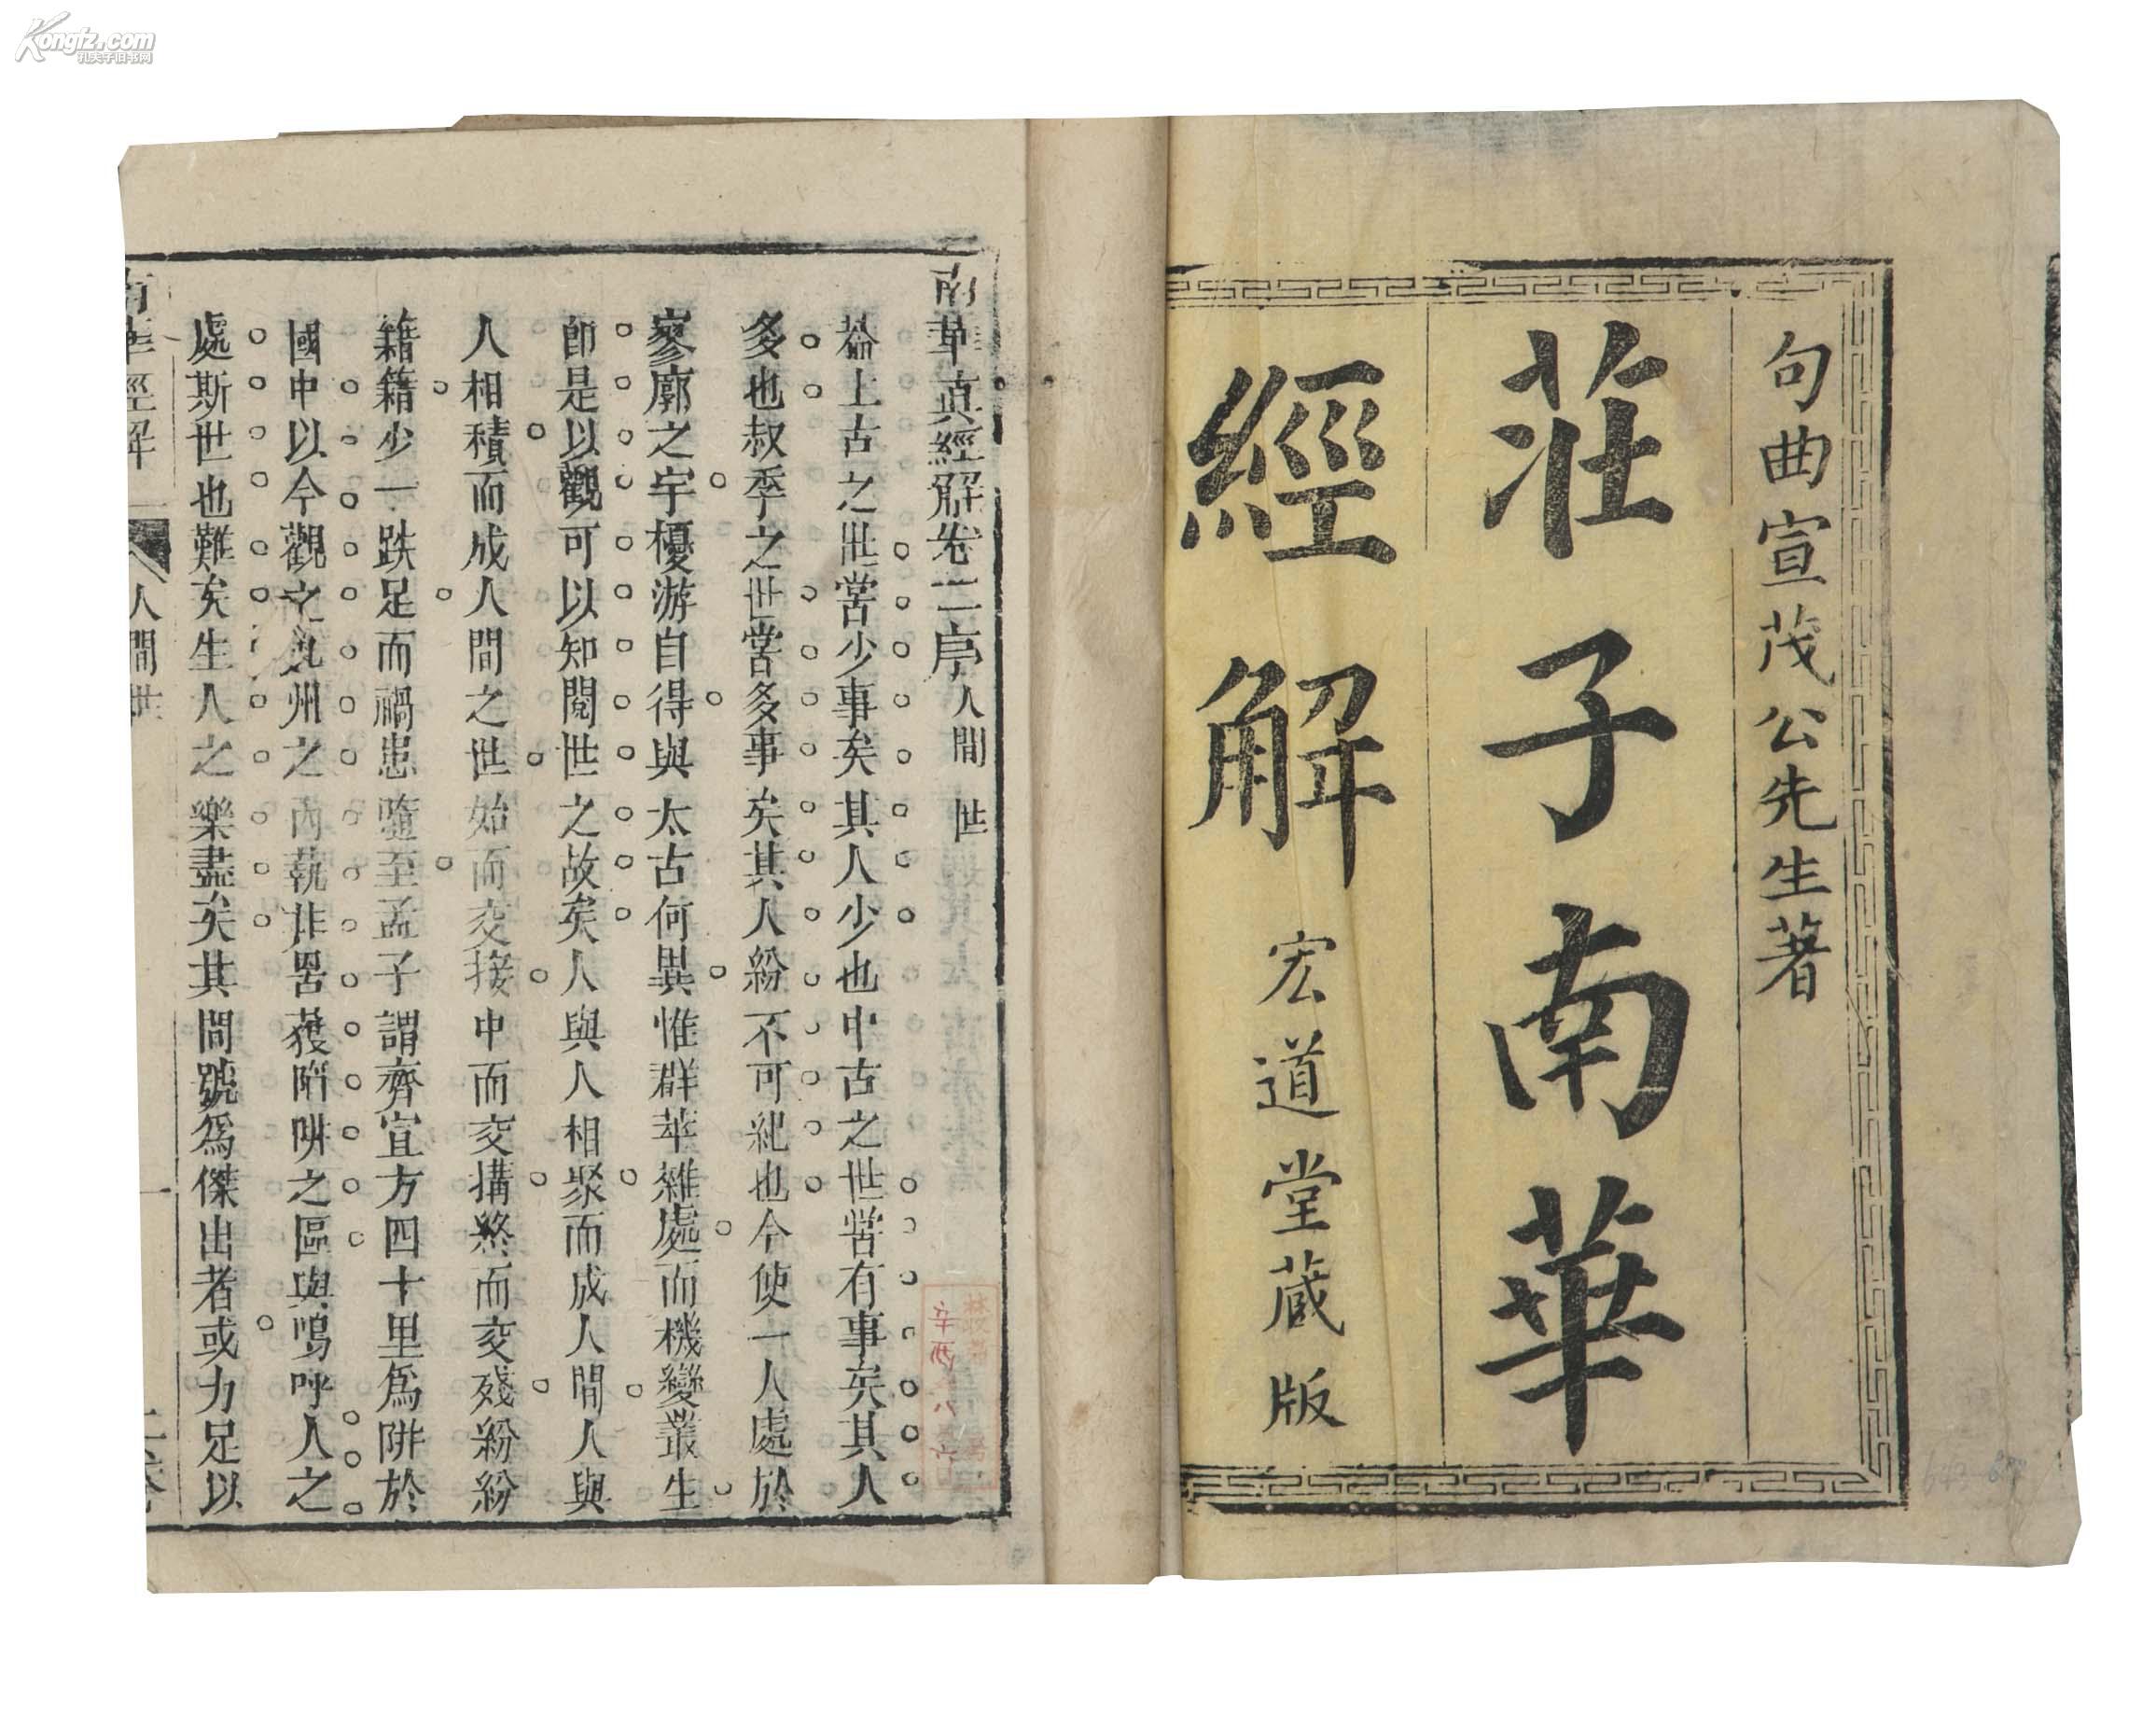 句曲宣茂公先生著
莊子南華
經解
宏道堂藏版
南華真經解卷二序人間世
葢上古之世嘗少事矣其人少也中古之世嘗有事矣其人
多也叔季之世嘗多事矣其人紛不可紀也今使一人處於
寥廓之宇優游自得與太古何異惟群萃雜處而機變叢生
即是以觀可以知閱世之故矣人與人相聚而成人間人與
人相積而成人間之世始而交接中而交搆終而交殘紛紛
籍籍少一跌足而禍患隨至孟子謂齊宣方四十里為阱於
國中以今觀之九州之內孰非罟擭陷阱之區與嗚呼人之
處斯世也難矣生人之樂盡矣其間號為傑出者或力足以
南華經解
人間世
一
辛酉
Kongfz.com
孔夫子旧书网